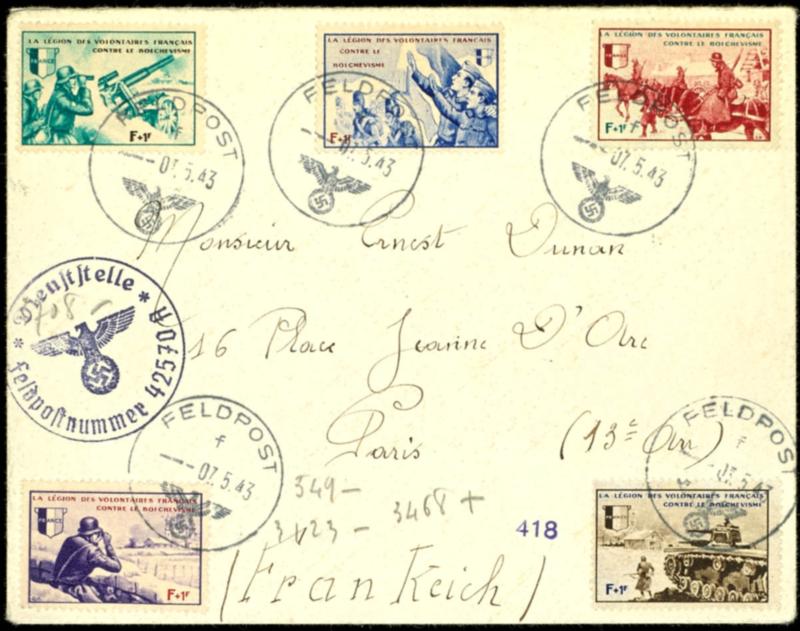 LA LÉGION DES VOLONTAIRES FRANÇAIS
CONTRE LE BOLCHEVISME
FRANCE
F+1F
LA LÉGION DES VOLONTAIRES FRANÇAIS
CONTRE LE
BOLCHEVISME
LA LÉGION DES VOLONTAIRES FRANÇAIS
CONTRE LE BOLCHEVISME
F+1F
FELDPOST
07.5.43
FELDPO
07.5.43
FELDPOST
f
07.5.43
Monsieur Ernest Dunan
16 Place Jeanne D'Arc
Paris (13e Arr)
* Dienststelle * 42570A
Feldpostnummer
708 -
FELDPOST
f
07.5.43
FELDPOST
f
07.5.43
LA LÉGION DES VOLONTAIRES FRANÇAIS
CONTRE LE BOLCHEVISME
FRANCE
F+1F
349 -
3423 - 3468 +
418
(FranKeich)
LA LÉGION DES VOLONTAIRES FRANÇAIS
CONTRE LE BOLCHEVISME
F+1F